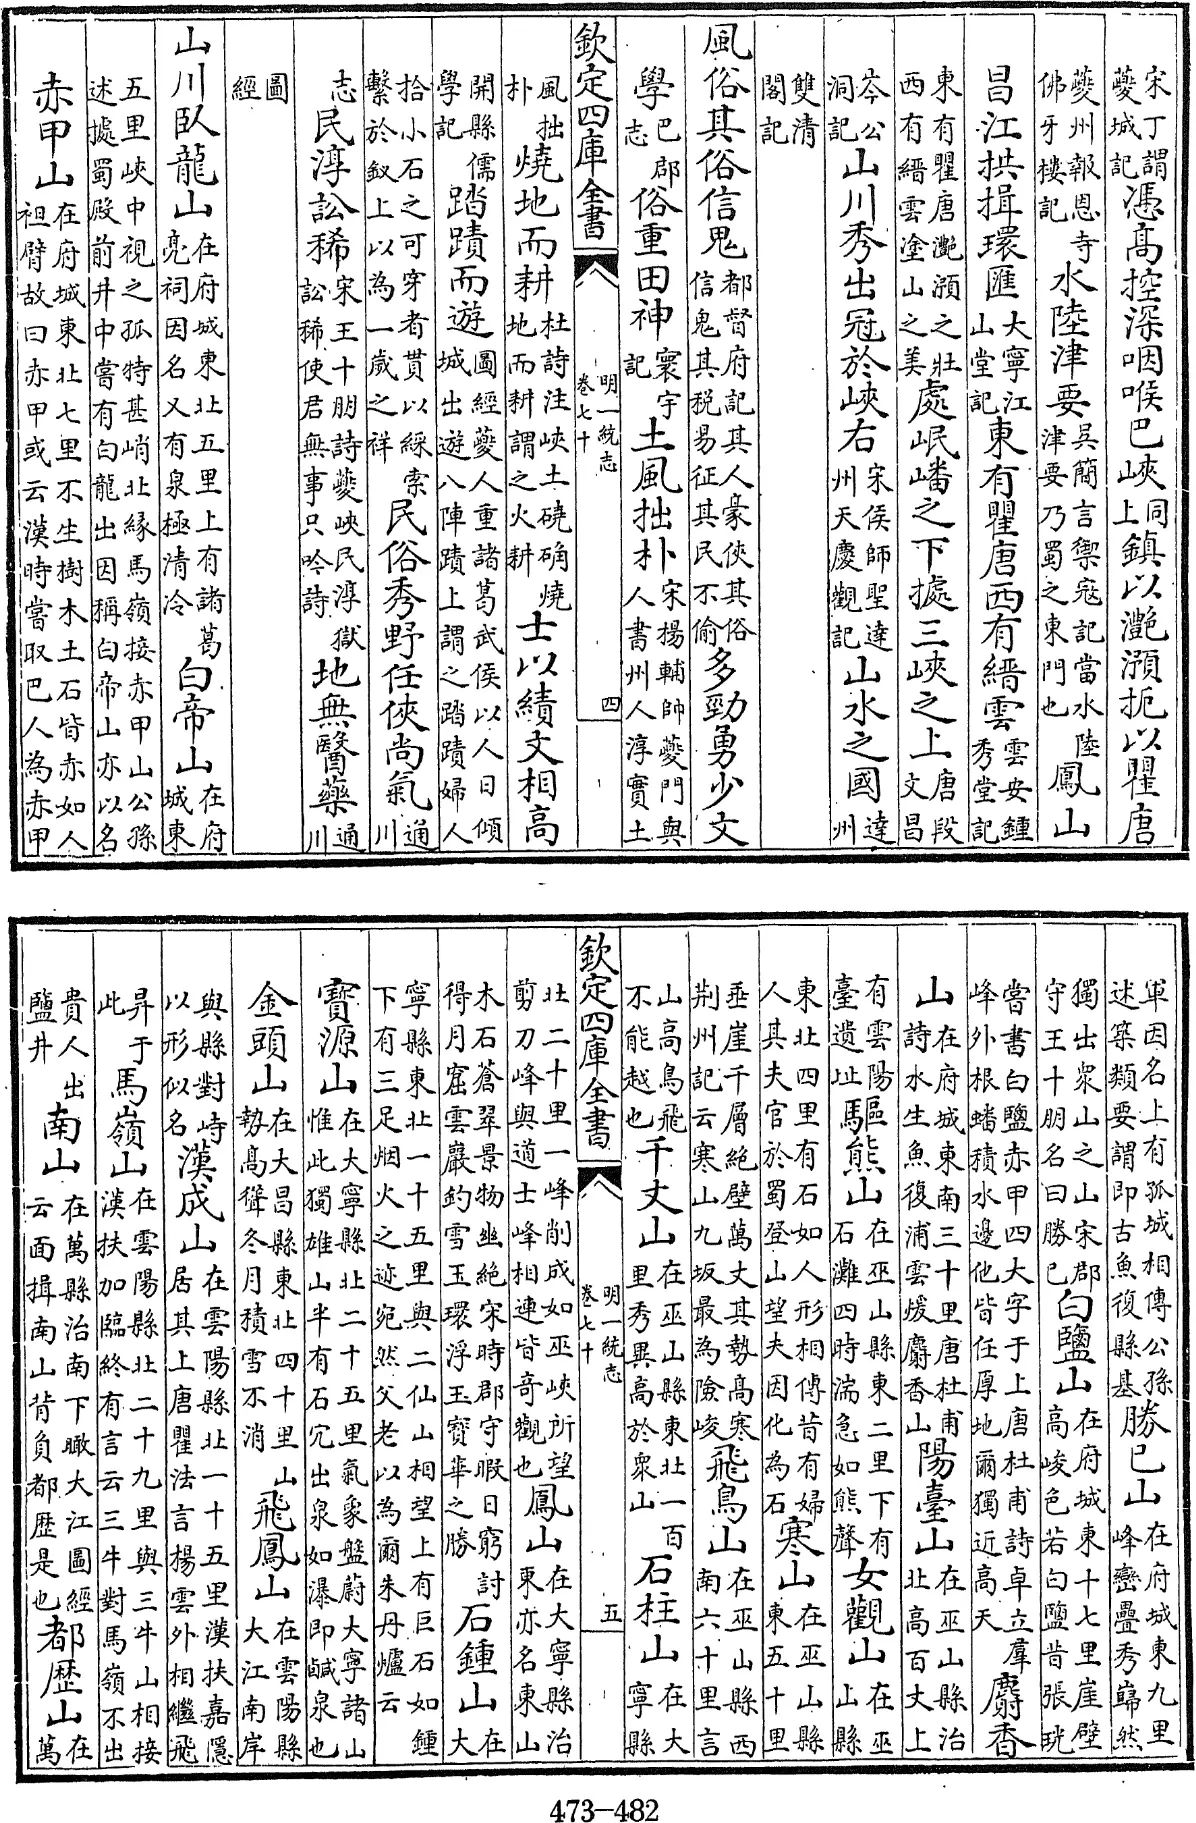 宋丁謂夔城記憑髙控深咽喉巴峽同上鎮以灧澦扼以瞿唐
夔州報恩寺佛牙樓記水陸津要吳簡言禦寇記當水陸津要乃蜀之東門也鳳山
昌江拱揖環匯大寧江山堂記東有瞿唐西有縉雲雲安鍾秀堂記
東有瞿唐灧澦之壯西有縉雲塗山之美處岷嶓之下據三峽之上唐段文昌
岑公洞記山川秀出冠於峽右宋侯師聖達州天慶觀記山水之國達州
雙清閣記
風俗其俗信鬼都督府記其人豪俠其俗信鬼其税易征其民不偷多勁勇少文
學巴郡志俗重田神寰宇記土風拙朴宋楊輔帥夔門與人書州人淳實土
欽定四庫全書 明一統志卷七十 四
風拙朴燒地而耕杜詩注峽土磽确燒地而耕謂之火耕士以績文相高
開縣儒學記踏蹟而遊圖經夔人重諸葛武侯以人日傾城出遊八陣蹟上謂之踏蹟婦人
拾小石之可穿者貫以綵索繫於釵上以為一歲之祥民俗秀野任俠尚氣通川
志民淳訟稀宋王十朋詩夔峽民淳獄訟稀使君無事只吟詩地無醫藥通川
圖經
山川臥龍山在府城東北五里上有諸葛亮祠因名又有泉極清冷白帝山在府城東
五里峽中視之孤特甚峭北緣馬嶺接赤甲山公孫述據蜀殿前井中嘗有白龍出因稱白帝山亦以名
赤甲山在府城東北七里不生樹木土石皆赤如人袒臂故曰赤甲或云漢時嘗取巴人為赤甲
軍因名上有孤城相傳公孫述築類要謂即古魚復縣基勝巳山在府城東九里峰巒疊秀巋然
獨出衆山之山宋郡守王十朋名曰勝巳白鹽山在府城東十七里崖壁高峻色若白鹽昔張珖
嘗書白鹽赤甲四大字于上唐杜甫詩卓立羣峰外根蟠積水邊他皆任厚地爾獨近高天麝香
山在府城東南三十里唐杜甫詩水生魚復浦雲煖麝香山陽臺山在巫山縣治北高百丈上
有雲陽臺遺址驅熊山在巫山縣東二里下有石灘四時湍急如熊聲女觀山在巫山縣
東北四里有石如人形相傳昔有婦人其夫官於蜀登山望夫因化為石寒山在巫山縣東五十里
垂崖千層絶壁萬丈其勢高寒荆州記云寒山九坂最為險峻飛鳥山在巫山縣西南六十里言
山高鳥飛不能越也千丈山在巫山縣東北一百里秀異高於衆山石柱山在大寧縣
欽定四庫全書 明一統志卷七十 五
北二十里一峰削成如巫峽所望剪刀峰與道士峰相連皆奇觀也鳳山在大寧縣治東亦名東山
木石蒼翠景物幽絶宋時郡守暇日窮討得月窟雲巖釣雪玉環浮玉寳華之勝石鍾山在大
寧縣東北一十五里與二仙山相望上有巨石如鍾下有三足烟火之迹宛然父老以為爾朱丹爐云
寶源山在大寧縣北二十五里氣象盤蔚大寧諸山惟此獨雄山半有石穴出泉如瀑即鹹泉也
金頭山在大昌縣東北四十里山勢髙聳冬月積雪不消飛鳳山在雲陽縣大江南岸
與縣對峙以形似名漢成山在雲陽縣北一十五里漢扶嘉隱居其上唐瞿法言楊雲外相繼飛
昇于此馬嶺山在雲陽縣北二十九里與三牛山相接漢扶加臨終有言云三牛對馬嶺不出
貴人出鹽井南山在萬縣治南下瞰大江圖經云面揖南山背負都歴是也都歴山在萬
473-482